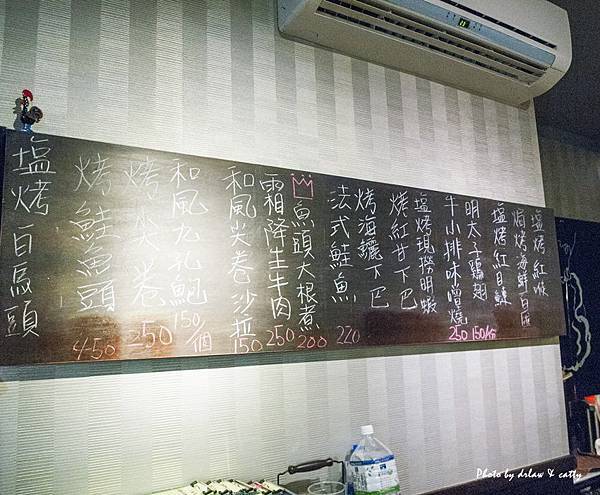 塩烤紅喉
焗烤海鮮白醬
塩烤紅目鰱
明太子鷄翅 150/份
牛小排味噌燒 250
塩烤現撈明蝦
烤紅甘下巴
烤海鱺下巴
法式鮭魚 220
魚頭大根煮 200
霜降生牛肉 250
和風尖卷沙拉 150
和風九孔鮑 150/個
烤尖卷 250
烤鮭魚頭 450
塩烤白馬頭
Photo by drlaw & catty